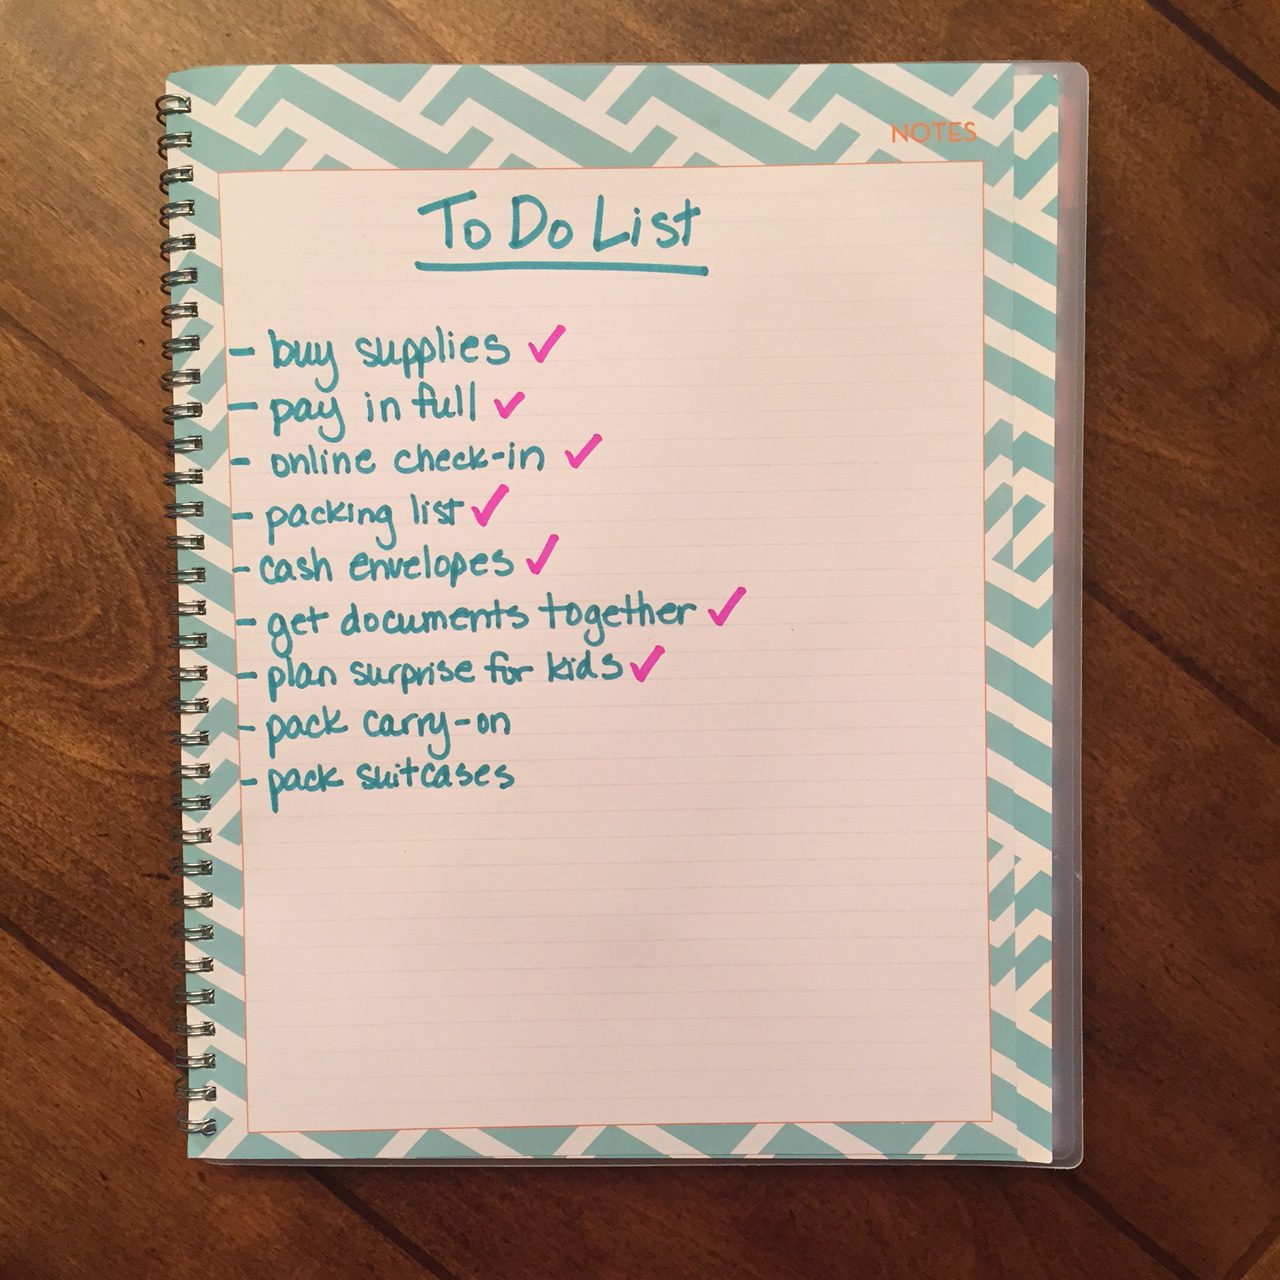 NOTES
To Do List
- buy supplies ✓
- pay in full ✓
- online check-in ✓
- packing list ✓
- cash envelopes ✓
- get documents together ✓
- plan surprise for kids ✓
- pack carry-on
- pack suitcases